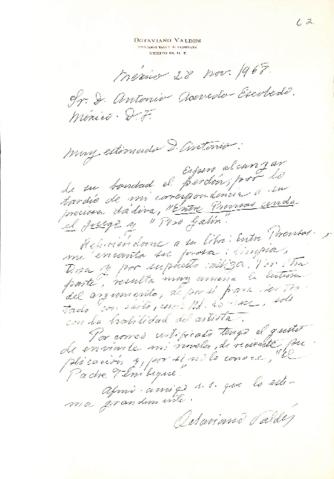 62
OCTAVIANO VALDES
México 28 nov. 1968.
Sr. D. Antonio Acevedo Escobedo
México. D. F.
Muy estimado D. Antonio:
Espero alcanzar
de su bondad el perdón, por lo
tardío de mi correspondencia a su
preciosa dádiva, "Entre Prensas anda
el juego y "Pbro Gatín".
Refiriéndome a su libro: Entre Prensas
me encanta su prosa, limpia,
tersa y por supuesto castiza. Por otra
parte, resulta muy amena la
del argumento, al
con la habilidad de artista.
Por correo ordinario tengo el gusto
de enviarle mi novela, de reciente pu-
blicación y, por si no la conoce, "El
Padre Tembleque"
Afmo. amigo s.s. que lo esti-
ma grandemente.
Octaviano Valdés